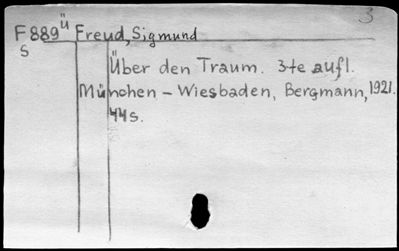 3
F889ü Freud, Sigmund
S
Über den Traum. 3-te aufl.
München - Wiesbaden, Bergmann, 1921.
44s.